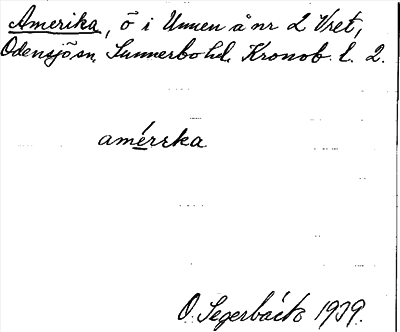 Amerika, ö i Unnen å nr 2 Vret,
Odensjö sn, Sunnerbo hd, Kronob. l. 2.
amérıka
O. Segerbäck 1939.